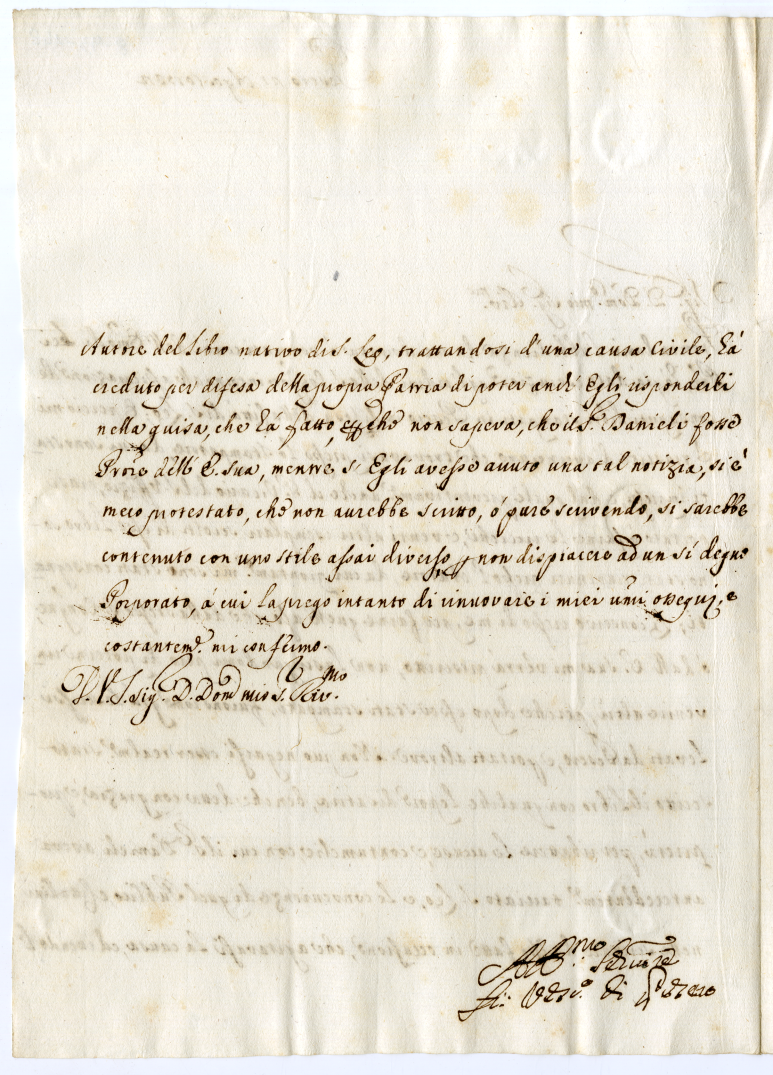 Autore del Libro nativo di S. Leo, trattandosi d'una causa Civile, há
creduto per difesa della propia Patria di poter anch' Egli risponderli
nella guisa, che há fatto, che non sapeva, che il S.r Danieli fosse
Prore dell' E. sua, mentre s' Egli avesse avuto una tal notizia, si é
meco protestato, che non aurebbe scritto, ó pure scrivendo, si sarebbe
contenuto con uno stile assai diverso p non dispiacere ad un sí degno
Porporato, á cui la prego intanto di rinuovare i miei umi ossequj, e
costantem.e mi confermo.
D. V. S. Sig.r D. Dom.o mio S.r Riv.mo
Aff.mo Servitore
Vesc.o di